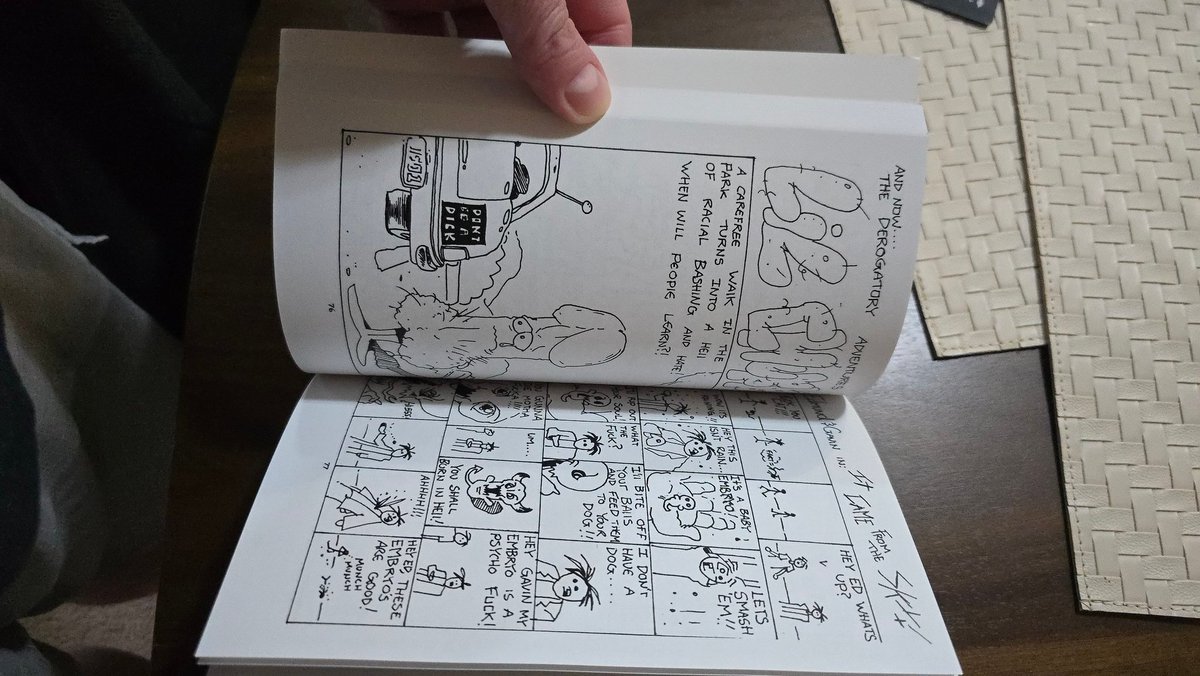 AND NOW....
THE DEROGATORY
ADVENTURES
A CAREFREE WALK IN THE
PARK TURNS INTO A HELL
OF RACIAL BASHING AND HATE!
WHEN WILL PEOPLE LEARN?!
DON'T
BE A
DICK
76
GAVIN IN: IT CAME FROM THE SKY
HEY ED WHATS
UP?
HEY THIS
ISNT RAIN...
IT'S A BABY
EMBRYO!
LETS
SMASH
EM!!
WHAT
THE
FUCK?
I'll BITE OFF
YOUR BALLS
AND FEED THEM
TO YOUR
DOG!!
I DON'T
HAVE A
DOG....
UM....
YOU SHALL
BORN IN HELL!
HEY GAVIN MY
EMBRYO IS A
PSYCHO FUCK!
AHHHH!!!
HEY ED, THESE
EMBRYO'S
ARE GOOD!
MUNCH
MUNCH
77